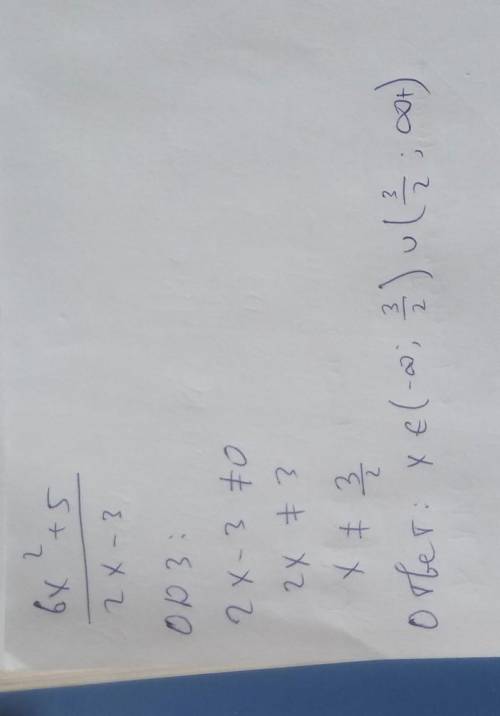 6x² + 5
2x - 3
ОДЗ:
2x - 3 ≠ 0
2x ≠ 3
x ≠ 3/2
Ответ: x ∈ (-∞; 3/2) ∪ (3/2; ∞+)